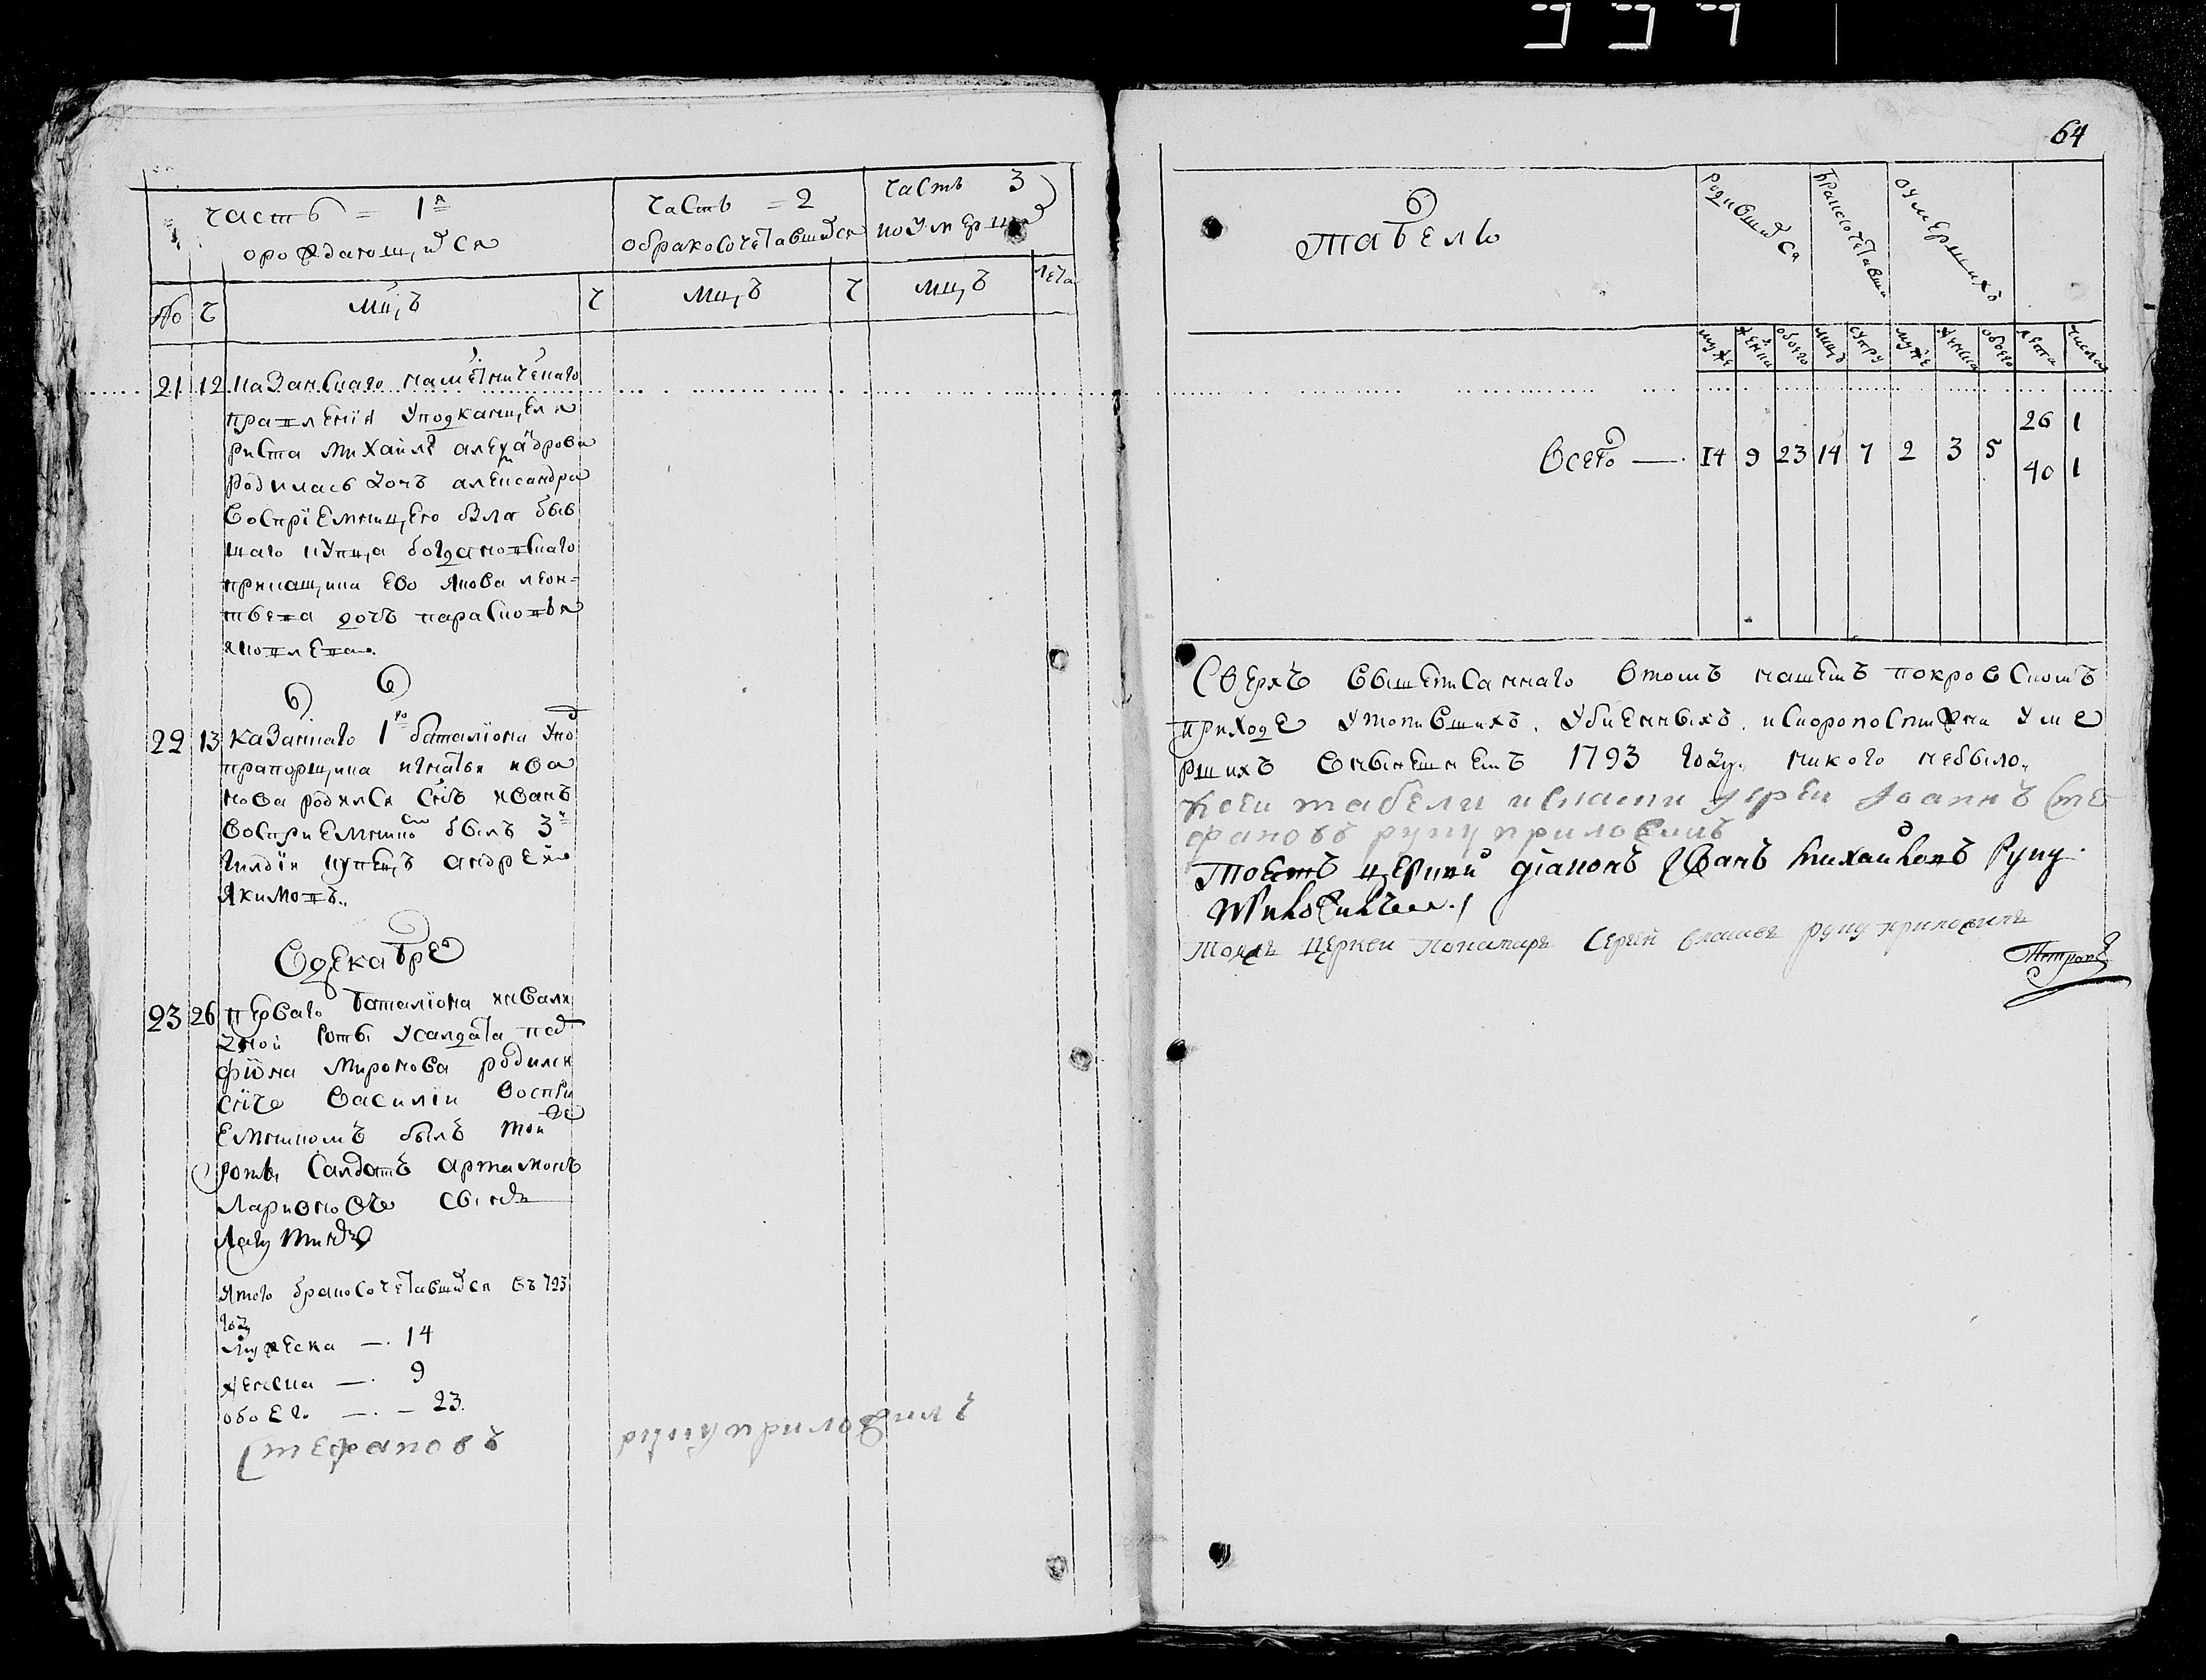 64
часть = 1я
орождающихся
часть = 2
обракосочетавшихся
часть 3
поумерших
№ ч мцъ ч мцъ ч мцъ лета
21 12 Казанскаго наместническаго
правления уподканцеля
риста Михайлы Александрова
родилась дочь александра
восприемницею была быв
шаго купца
прикащика ево якова леон=
тьева дочь парасковья
яковлева.
22 13 казанаго 1го баталиона упод
прапорщика игнатья ива
нова родился сынъ иванъ
восприемникомъ былъ 3й
гилдии купецъ андрей
Якимовъ.
Вдекабре
23 26 перваго баталиона инвали
дной роты усалдата
Миронова родился
сынъ василии воспри
емникомъ былъ той же
роты салдатъ артамонъ
Ларионовъ
итого бракосочетавшихся въ 793
году
мужеска — 14
женска — 9
обоего — 23.
Стефановъ
табель
родившихся
бракосочетавши
оумершихъ
муже женска обоего лицъ супру муже женска обоего лета число
26 1
Всего — 14 9 23 14 7 2 3 5
40 1
Сверхъ вышеписаннаго втомъ нашемъ покровскомъ
приходе утопившихъ, убиенныхъ, искоропостижна уме
ршихъ внынешнемъ 1793 году никого небыло.
Ксеи табели иерей Иоаннъ Сте
фановъ руку приложилъ
Тоежъ церкви диаконъ Иванъ Михайловъ руку
приложилъ
тояжъ церкви понамарь Сергей руку приложилъ
Петровъ